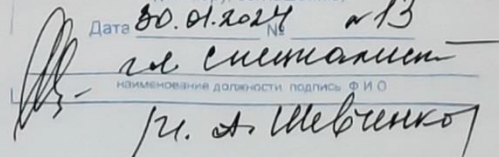 Дата 30.01.2024 № 13
гл специалист
наименование должности подпись Ф И О
А. Шевченко